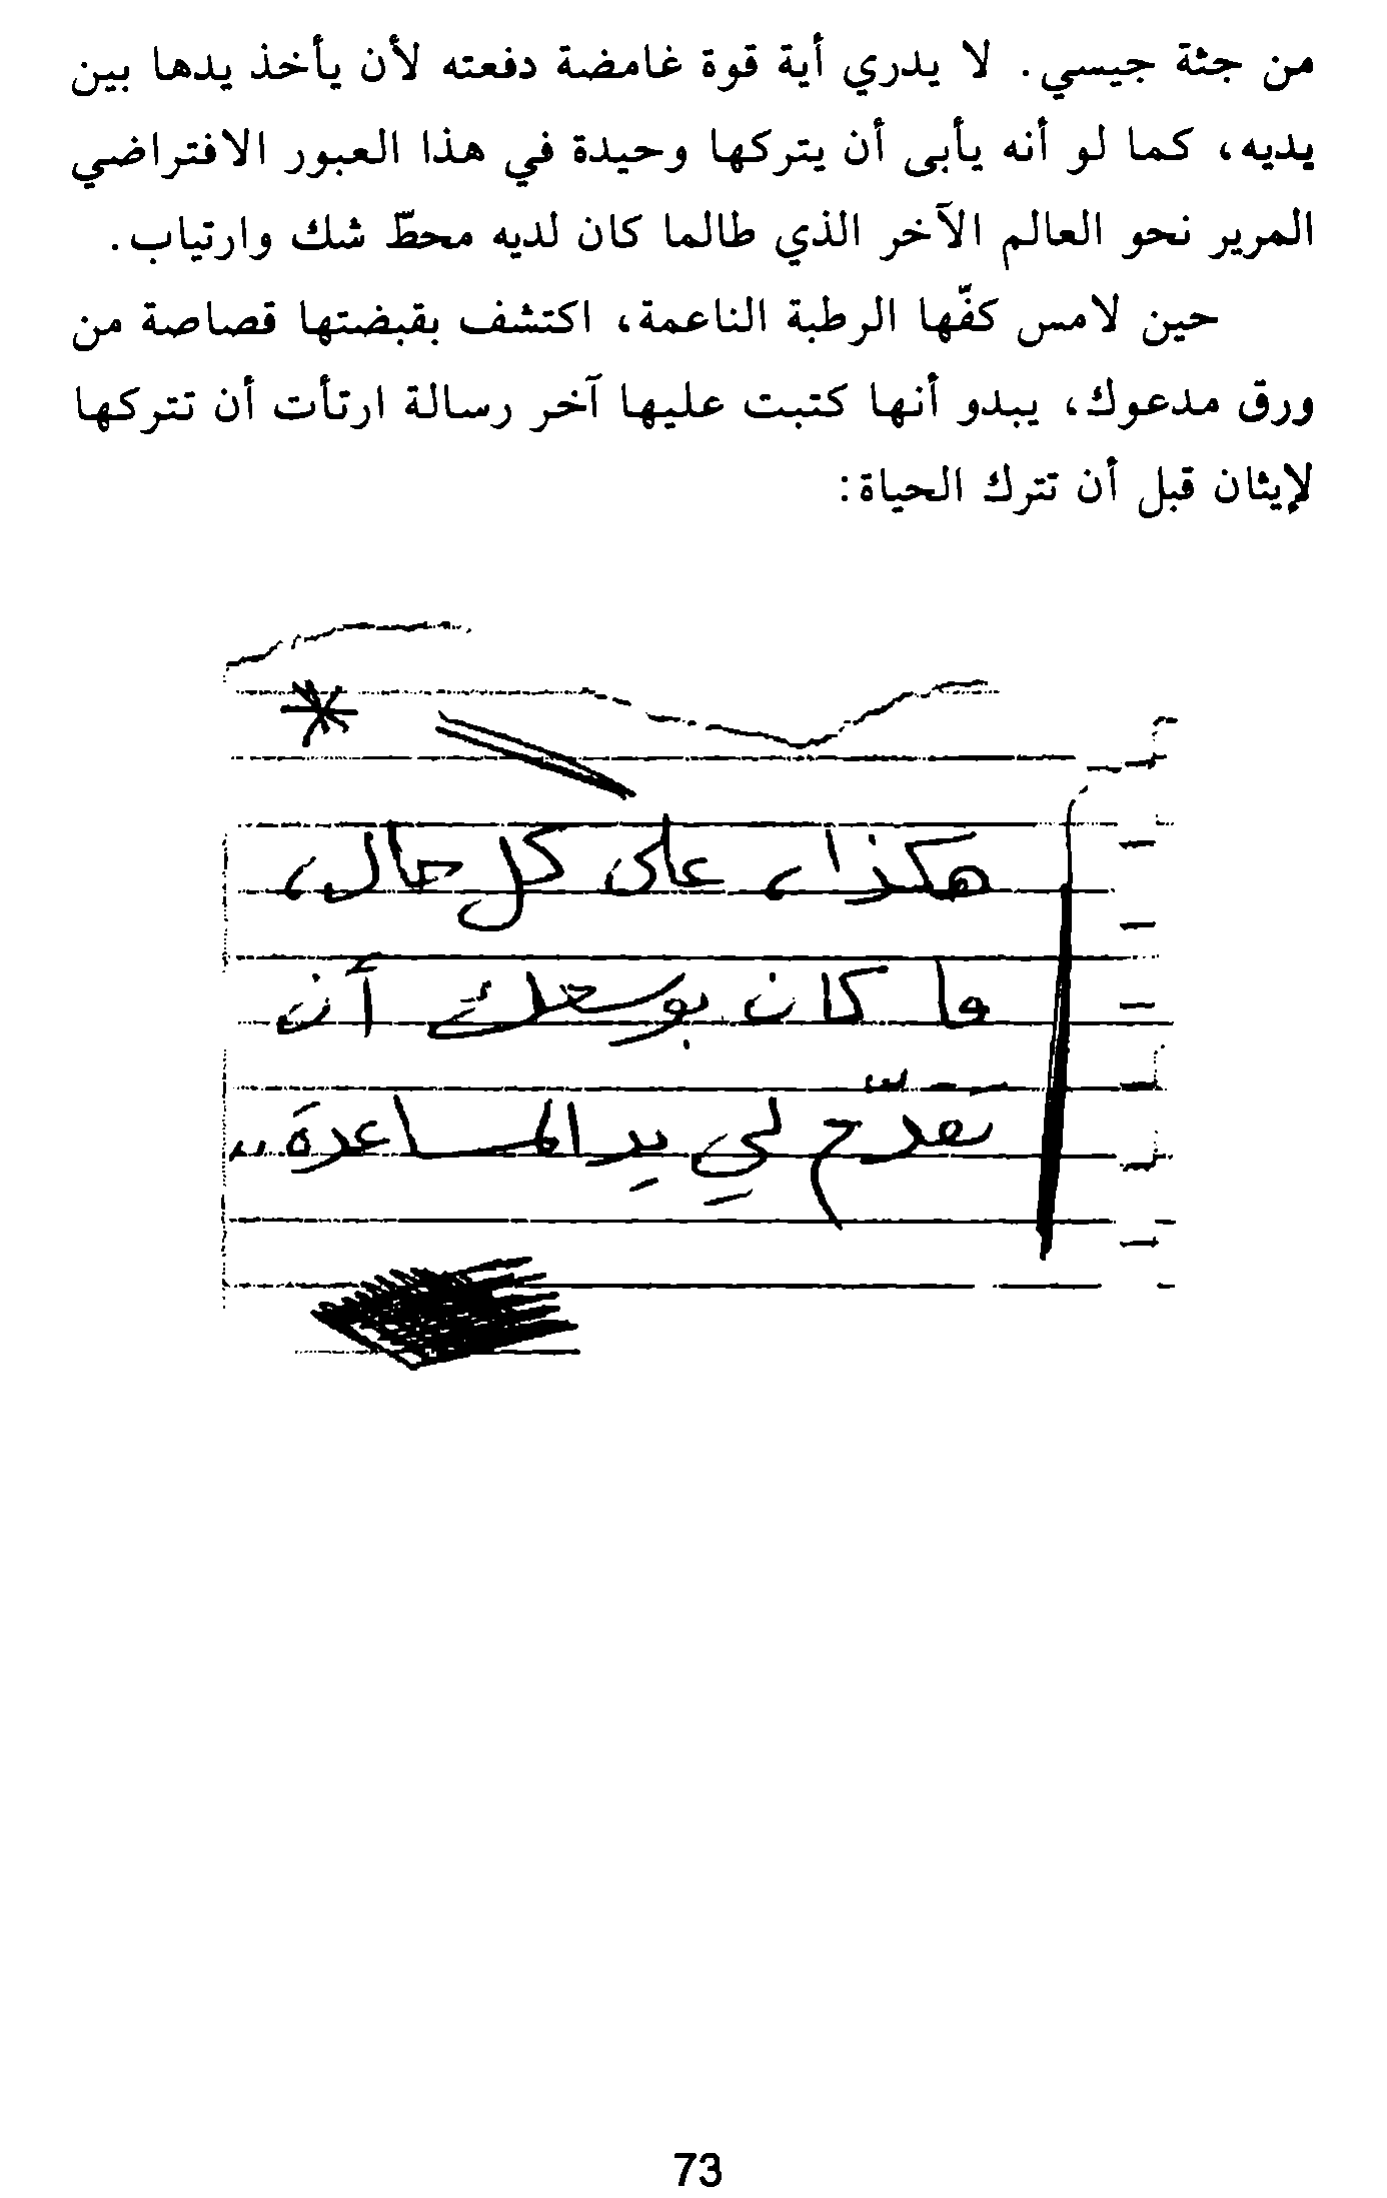 من جثة جيسي. لا يدري أية قوة غامضة دفعته لأن يأخذ يدها بين
يديه، كما لو أنه يأبى أن يتركها وحيدة في هذا العبور الافتراضي
المرير نحو العالم الآخر الذي طالما كان لديه محطّ شك وارتياب.
حين لامس كفّها الرطبة الناعمة، اكتشف بقبضتها قصاصة من
ورق مدعوك، يبدو أنها كتبت عليها آخر رسالة ارتأت أن تتركها
لإيثان قبل أن تترك الحياة:
هكذا، على كل حال،
ما كان بوسعك أن
تقدّم لي يد المساعدة..
73